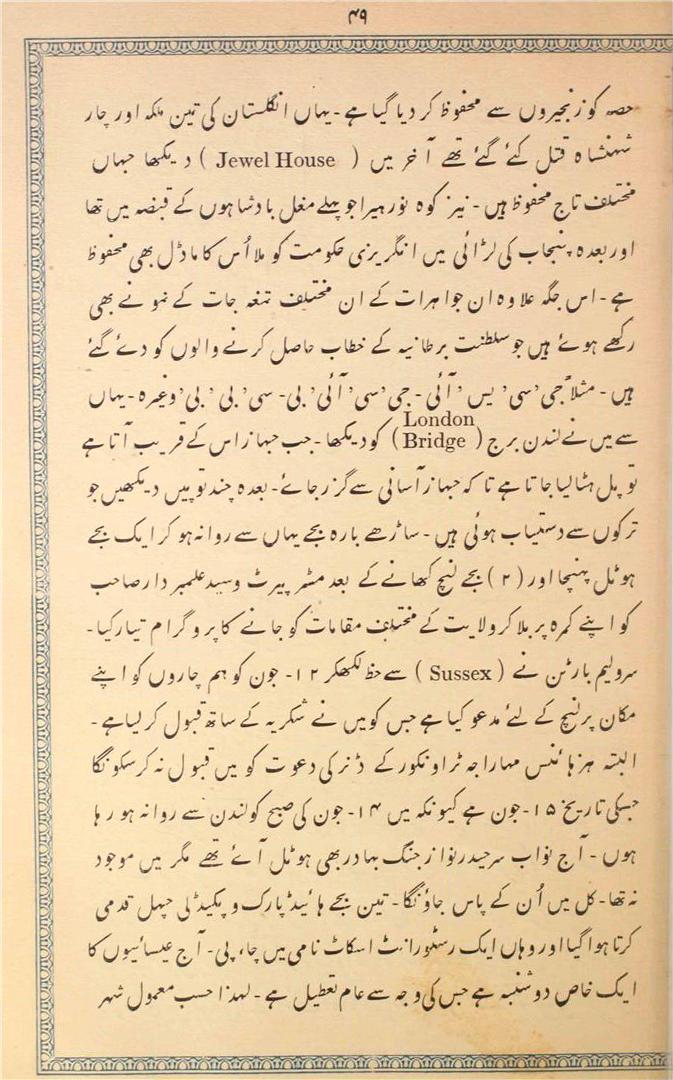 ۴۹
حصہ کو زنجیروں سے محفوظ کر دیا گیا ہے۔ یہاں انگلستان کی تین ملکہ اور چار
شہنشاہ قتل کئے گئے تھے آخر میں ( Jewel House ) دیکھا جہاں
مختلف تاج محفوظ ہیں۔ نیز کوہ نور ہیرا جو پہلے مغل بادشاہوں کے قبضہ میں تھا
اور بعدہ پنجاب کی لڑائی میں انگریزی حکومت کو ملا اُس کا ماڈل بھی محفوظ
ہے۔ اس جگہ علاوہ ان جواہرات کے ان مختلف تمغہ جات کے نمونے بھی
رکھے ہوئے ہیں جو سلطنت برطانیہ کے خطاب حاصل کرنے والوں کو دئے گئے
ہیں۔ مثلاً جی، سی، یس، آئی۔ جی، سی، آئی، بی۔ سی، بی، بی، وغیرہ۔ یہاں
سے میں نے لندن برج ( London Bridge ) کو دیکھا۔ جب جہاز اس کے قریب آتا ہے
تو پل ہٹا لیا جاتا ہے تاکہ جہاز آسانی سے گزر جائے۔ بعدہ چند توپیں دیکھیں جو
ترکوں سے دستیاب ہوئی ہیں۔ ساڑھے بارہ بجے یہاں سے روانہ ہو کر ایک بجے
ہوٹل پہنچا اور ( ۲ ) بجے لنچ کھانے کے بعد مسٹر پیرٹ و سید علمبردار صاحب
کو اپنے کمرہ پر بلا کر ولایت کے مختلف مقامات کو جانے کا پروگرام تیار کیا۔
سر ولیم بارٹن نے ( Sussex ) سے خط لکھکر ۱۲۔ جون کو ہم چاروں کو اپنے
مکان پر لنچ کے لئے مدعو کیا ہے جس کو میں نے شکریہ کے ساتھ قبول کر لیا ہے۔
البتہ ہز ہائنس مہاراجہ ٹراونکور کے ڈنر کی دعوت کو میں قبول نہ کر سکونگا
جسکی تاریخ ۱۵۔ جون ہے کیونکہ میں ۱۴۔ جون کی صبح کو لندن سے روانہ ہو رہا
ہوں۔ آج نواب سر حیدر نواز جنگ بہادر بھی ہوٹل آئے تھے مگر میں موجود
نہ تھا۔ کل میں اُن کے پاس جاؤنگا۔ تین بجے ہائیڈ پارک و پکیڈلی چہل قدمی
کرتا ہوا گیا اور وہاں ایک رسٹورانٹ اسکاٹ نامی میں چاء پی۔ آج عیسائیوں کا
ایک خاص دوشنبہ ہے جس کی وجہ سے عام تعطیل ہے۔ لہذا حسب معمول شہر